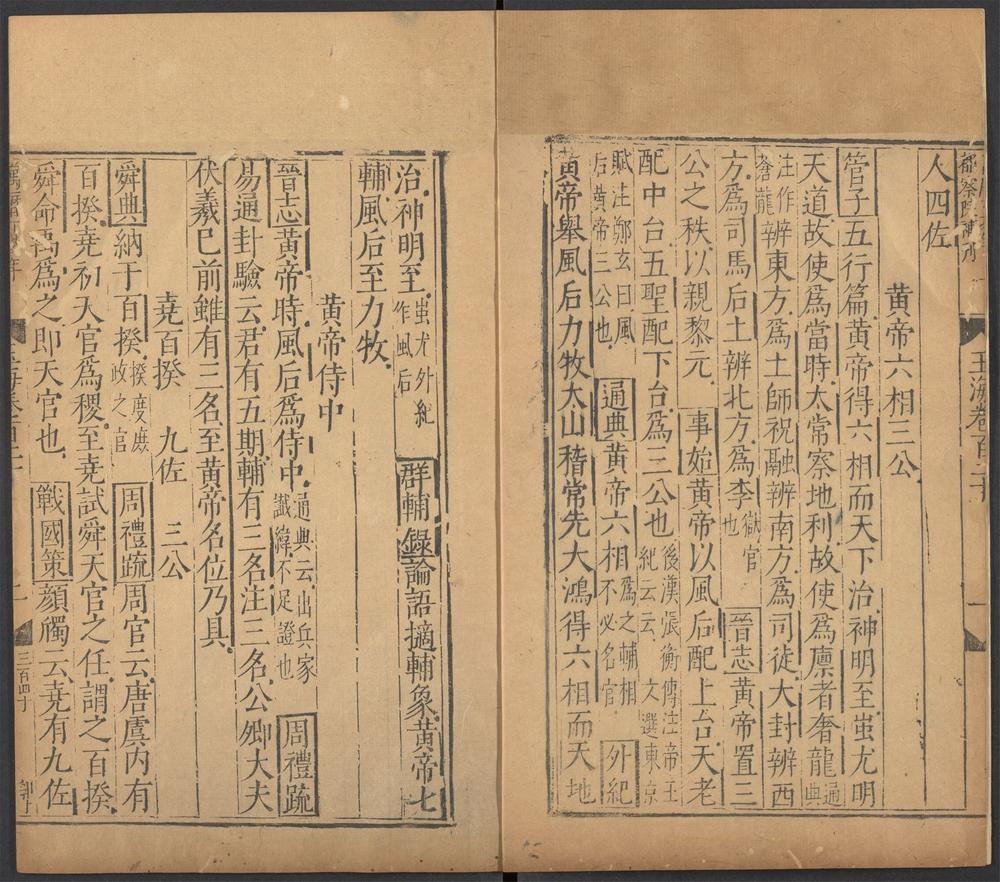 人四佐
黃帝六相三公
管子五行篇黃帝得六相而天下治神明至蚩尤明
天道故使爲當時太常察地利故使爲廩者奢龍通典
注作蒼龍辨東方爲土師祝融辨南方爲司徒大封辨西
方爲司馬后土辨北方爲李獄官也 晉志黃帝置三
公之秩以親黎元 事始黃帝以風后配上台天老
配中台五聖配下台爲三公也後漢張衡傳注帝王紀云云文選東京
賦注鄭玄曰風后黃帝三公也 通典黃帝六相爲之輔相不必名官 外紀
黃帝舉風后力牧大山稽常先大鴻得六相而天地
治神明至蚩尤外紀作風后 群輔錄論語摘輔象黃帝七
輔風后至力牧
黃帝侍中
晉志黃帝時風后爲侍中通典云出兵家讖緯不足證也 周禮疏
易通卦驗云君有五期輔有三名注三名公卿大夫
伏羲巳前雖有三名至黃帝名位乃具
堯百揆 九佐 三公
舜典納于百揆揆度庶政之官 周禮疏周官云唐虞內有
百揆堯初天官爲稷至堯試舜天官之任謂之百揆
舜命禹爲之即天官也 戰國策顏斶云堯有九佐
都察院
玉海卷百二十
一
三百四十